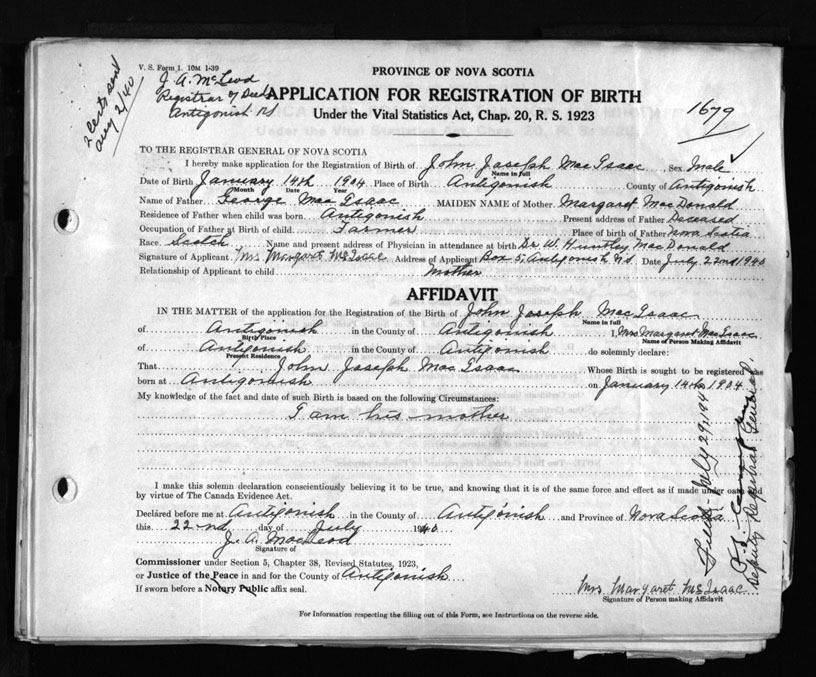 V. S. Form 1. 10M 1-39
J. A. McLeod
Registrar of Deeds
Antigonish NS
2 Certs sent
Aug 2/40
PROVINCE OF NOVA SCOTIA
APPLICATION FOR REGISTRATION OF BIRTH
Under the Vital Statistics Act, Chap. 20, R. S. 1923
1679
TO THE REGISTRAR GENERAL OF NOVA SCOTIA
I hereby make application for the Registration of Birth of John Joseph MacIsaac Sex Male
Name in full
Date of Birth January 14th 1904 Place of Birth Antigonish County of Antigonish
Month Date Year
Name of Father George MacIsaac MAIDEN NAME of Mother Margaret MacDonald
Residence of Father when child was born Antigonish Present address of Father Deceased
Occupation of Father at Birth of child Farmer Place of birth of Father Nova Scotia
Race Scotch Name and present address of Physician in attendance at birth Dr. W. Huntley MacDonald
Signature of Applicant Mrs Margaret McIsaac Address of Applicant Box 5, Antigonish, N.S. Date July 22nd 1940
Relationship of Applicant to child Mother
AFFIDAVIT
IN THE MATTER of the application for the Registration of the Birth of John Joseph MacIsaac
Name in full
of Antigonish in the County of Antigonish I, Mrs Margaret MacIsaac
Birth Place Name of Person Making Affidavit
of Antigonish in the County of Antigonish do solemnly declare:
Present Residence
That John Joseph MacIsaac Whose Birth is sought to be registered was
born at Antigonish on January 14th 1904
My knowledge of the fact and date of such Birth is based on the following Circumstances:
I am his mother
I make this solemn declaration conscientiously believing it to be true, and knowing that it is of the same force and effect as if made under oath and
by virtue of The Canada Evidence Act.
Declared before me at Antigonish in the County of Antigonish and Province of Nova Scotia
this 22nd day of July 1940
J. A. MacLeod
Signature of
Commissioner under Section 5, Chapter 38, Revised Statutes, 1923,
or Justice of the Peace in and for the County of Antigonish
If sworn before a Notary Public affix seal.
Mrs Margaret McIsaac
Signature of Person making Affidavit
For Information respecting the filling out of this Form, see Instructions on the reverse side.
Filed July 29, 194
Deputy Registrar General